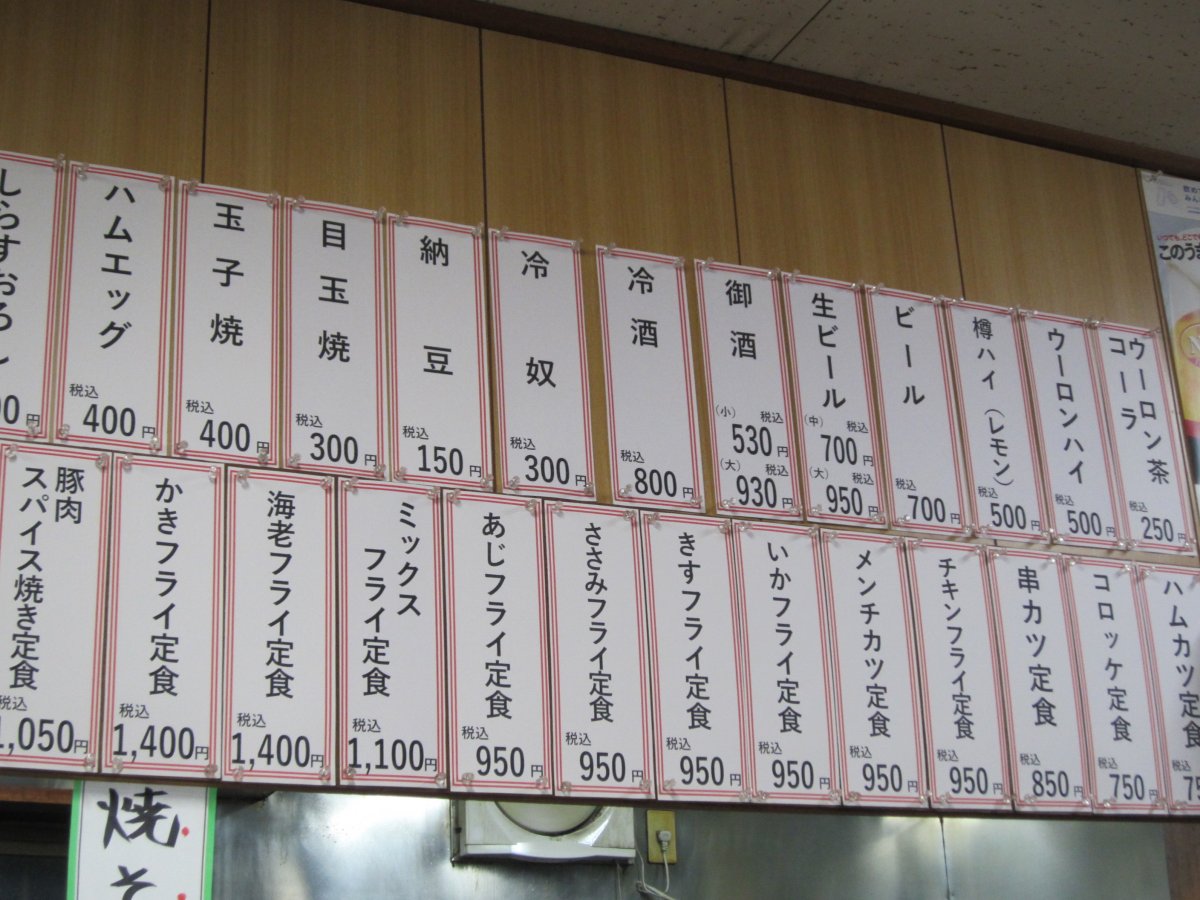 しらすおろし
00円
ハムエッグ
税込
400円
玉子焼
税込
400円
目玉焼
税込
300円
納豆
税込
150円
冷奴
税込
300円
冷酒
税込
800円
御酒
(小) 税込
530円
(大) 税込
930円
生ビール
(中) 税込
700円
(大) 税込
950円
ビール
税込
700円
樽ハイ(レモン)
税込
500円
ウーロンハイ
税込
500円
ウーロン茶
コーラ
税込
250円
このうま
豚肉
スパイス焼き定食
税込
1,050円
かきフライ定食
税込
1,400円
海老フライ定食
税込
1,400円
ミックス
フライ定食
税込
1,100円
あじフライ定食
税込
950円
ささみフライ定食
税込
950円
きすフライ定食
税込
950円
いかフライ定食
税込
950円
メンチカツ定食
税込
950円
チキンフライ定食
税込
950円
串カツ定食
税込
850円
コロッケ定食
税込
750円
ハムカツ定食
税込
75
焼そ